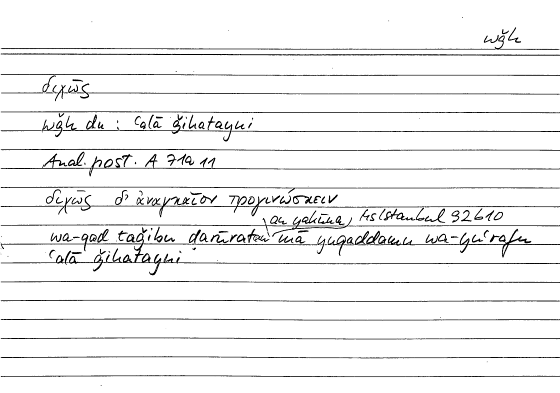 wǧh
διχῶς
wǧh du : ʿalā ǧihatayni
Anal. post. A 71a 11
διχῶς δ' ἀναγκαῖον προγινώσκειν
an yakūna, Hs Istanbul 92b10
wa-qad taǧibu ḍarūratan mā yuqaddamu wa-yuʿrafu
ʿalā ǧihatayni